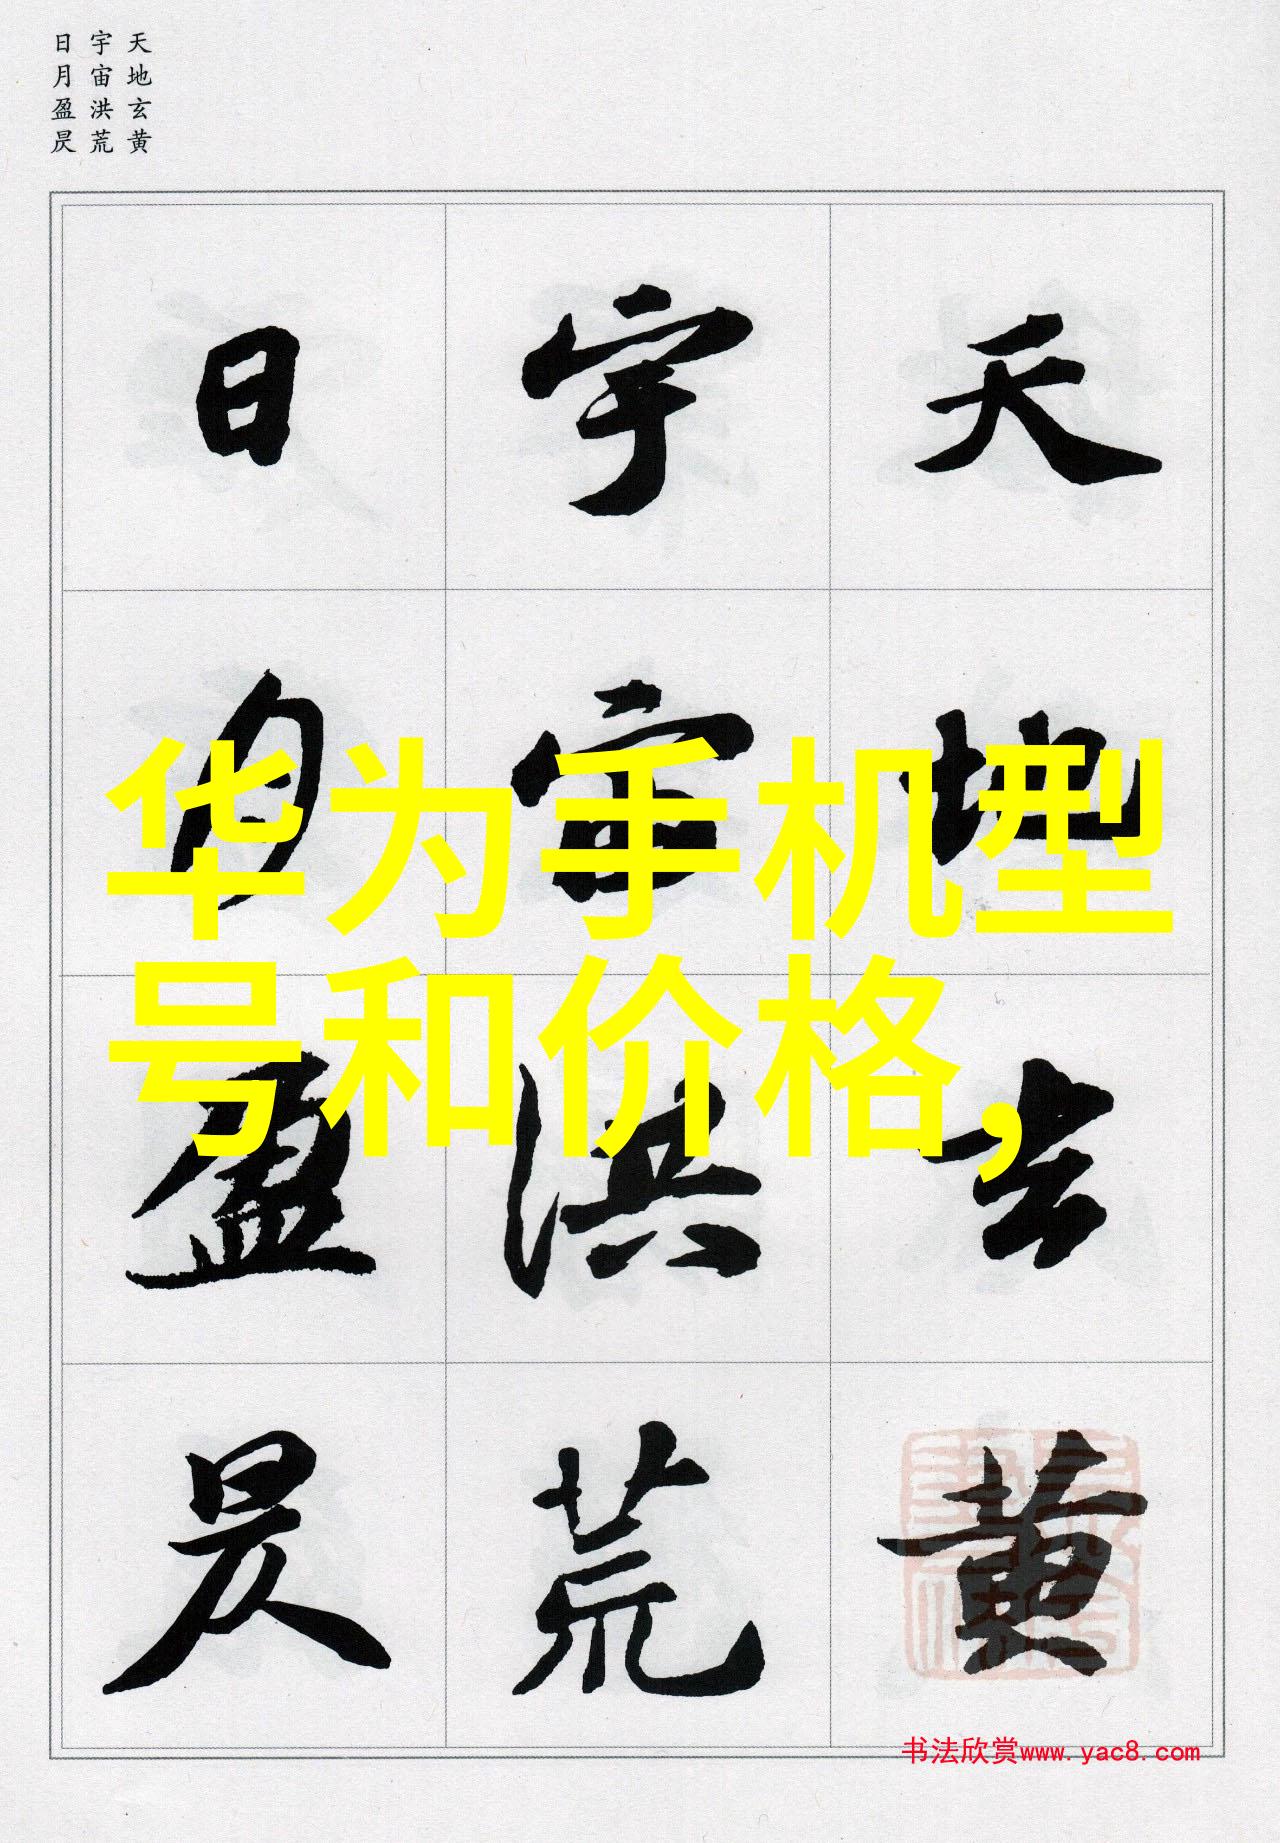 天地玄黄
宇宙洪荒
日月盈昃
天地玄黄
宇宙洪荒
日月盈昃
华为手机型
号和价格,
书法欣赏www.yac8.com